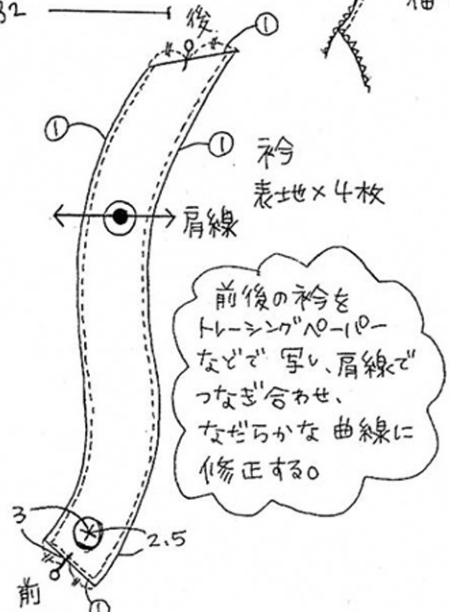 32
後
①
①
①
衿
表地×4枚
肩線
前後の衿を
トレーシングペーパー
などで写し、肩線で
つなぎ合わせ、
なだらかな曲線に
修正する。
3
2.5
前
①